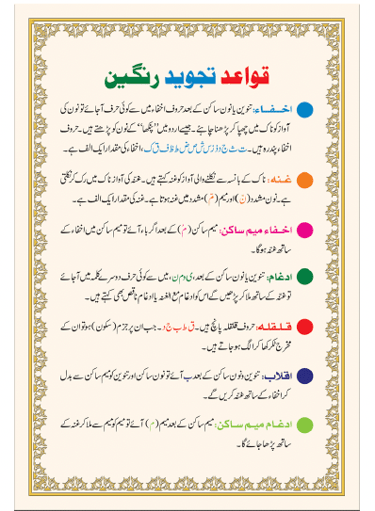 قواعد تجوید رنگین
اخفاء: تنوین یا نون ساکن کے بعد حروف اخفاء میں سے کوئی حرف آجائے تو نون کی
آواز کو ناک میں چھپا کر پڑھنا چاہیئے۔ جیسے اردو میں ”پنکھا“ کے نون کو پڑھتے ہیں۔ حروف
اخفاء پندرہ ہیں۔ ت ث ج د ذ ز س ش ص ض ط ظ ف ق ک، اخفاء کی مقدار ایک الف ہے۔
غنہ: ناک کے بانسہ سے نکلنے والی آواز کو غنہ کہتے ہیں۔ غنہ کی آواز ناک میں رک کر نکلتی
ہے۔ نون مشدد (نّ) اور میم (مّ) مشدد میں غنہ ہوتا ہے۔ غنہ کی مقدار ایک الف ہے۔
اخفاء میم ساکن: میم ساکن (مْ) کے بعد اگر باء آئے تو میم ساکن میں اخفاء کے
ساتھ غنہ ہوگا۔
ادغام: تنوین یا نون ساکن کے بعد، ی و م ن، میں سے کوئی حرف دوسرے کلمہ میں آجائے
تو غنہ کے ساتھ ملا کر پڑھیں گے اس کو ادغام مع الغنہ یا ادغام ناقص بھی کہتے ہیں۔
قلقلہ: حروف قلقلہ پانچ ہیں۔ ق ط ب ج د۔ جب ان پر جزم (سکون) ہو تو ان کے
مخرج ٹکر کھا کر الگ ہو جاتے ہیں۔
اقلاب: تنوین و نون ساکن کے بعد ب آئے تو نون ساکن اور تنوین کو میم ساکن سے بدل
کر اخفاء کے ساتھ غنہ کریں گے۔
ادغام میم ساکن: میم ساکن کے بعد میم (م) آئے تو میم کو میم سے ملا کر غنہ کے
ساتھ پڑھا جائے گا۔